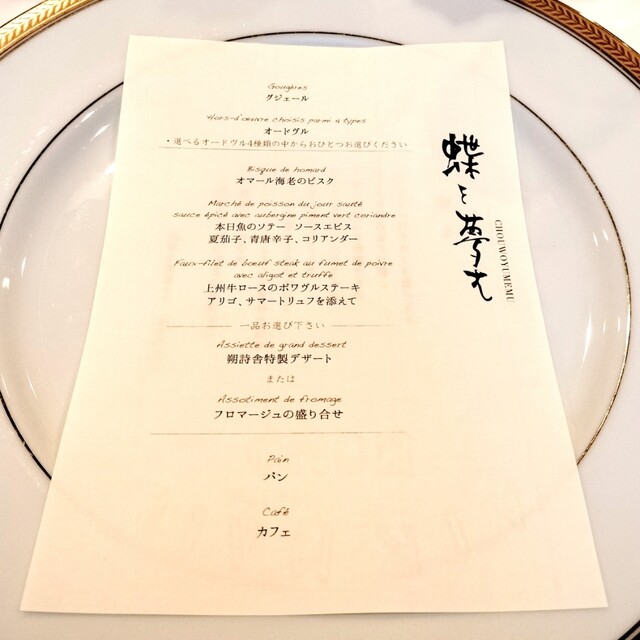 Gougères
グジェール
Hors-d'œuvre choisis parmi 4 types
オードヴル
・選べるオードヴル4種類の中からおひとつお選びください
Bisque de homard
オマール海老のビスク
Marché de poisson du jour sauté
sauce épicé avec aubergine piment vert coriandre
本日魚のソテー ソースエピス
夏茄子、青唐辛子、コリアンダー
Faux-filet de bœuf steak au fumet de poivre
avec aligot et truffe
上州牛ロースのポワヴルステーキ
アリゴ、サマートリュフを添えて
一品お選び下さい
Assiette de grand dessert
朔詩舎特製デザート
または
Assotiment de fromage
フロマージュの盛り合せ
Pain
パン
Café
カフェ
蝶を夢む
CHOUWOYUMEMU